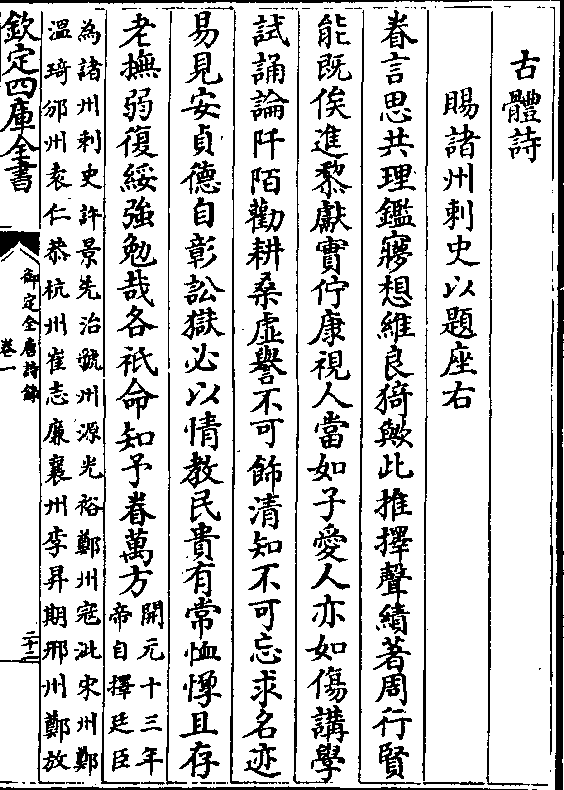 古體詩
賜諸州刺史以題座右
眷言思共理鑑寢想維良猗歟此推擇聲績著周行賢
能既俟進黎獻實佇康視人當如子愛人亦如傷講學
試誦論阡陌勸耕桑虛譽不可飾清知不可忘求名迹
易見安貞德自彰訟獄必以情教民貴有常恤惸且存
老撫弱復綏強勉哉各祇命知予眷萬方
開元十三年
帝自擇廷臣
為諸州刺史許景先治虢州源光裕鄭州寇泚宋州鄭
溫琦邠州袁仁恭杭州崔志廉襄州李昇期邢州鄭放
欽定四庫全書
御定全唐詩錄
卷一
二十二